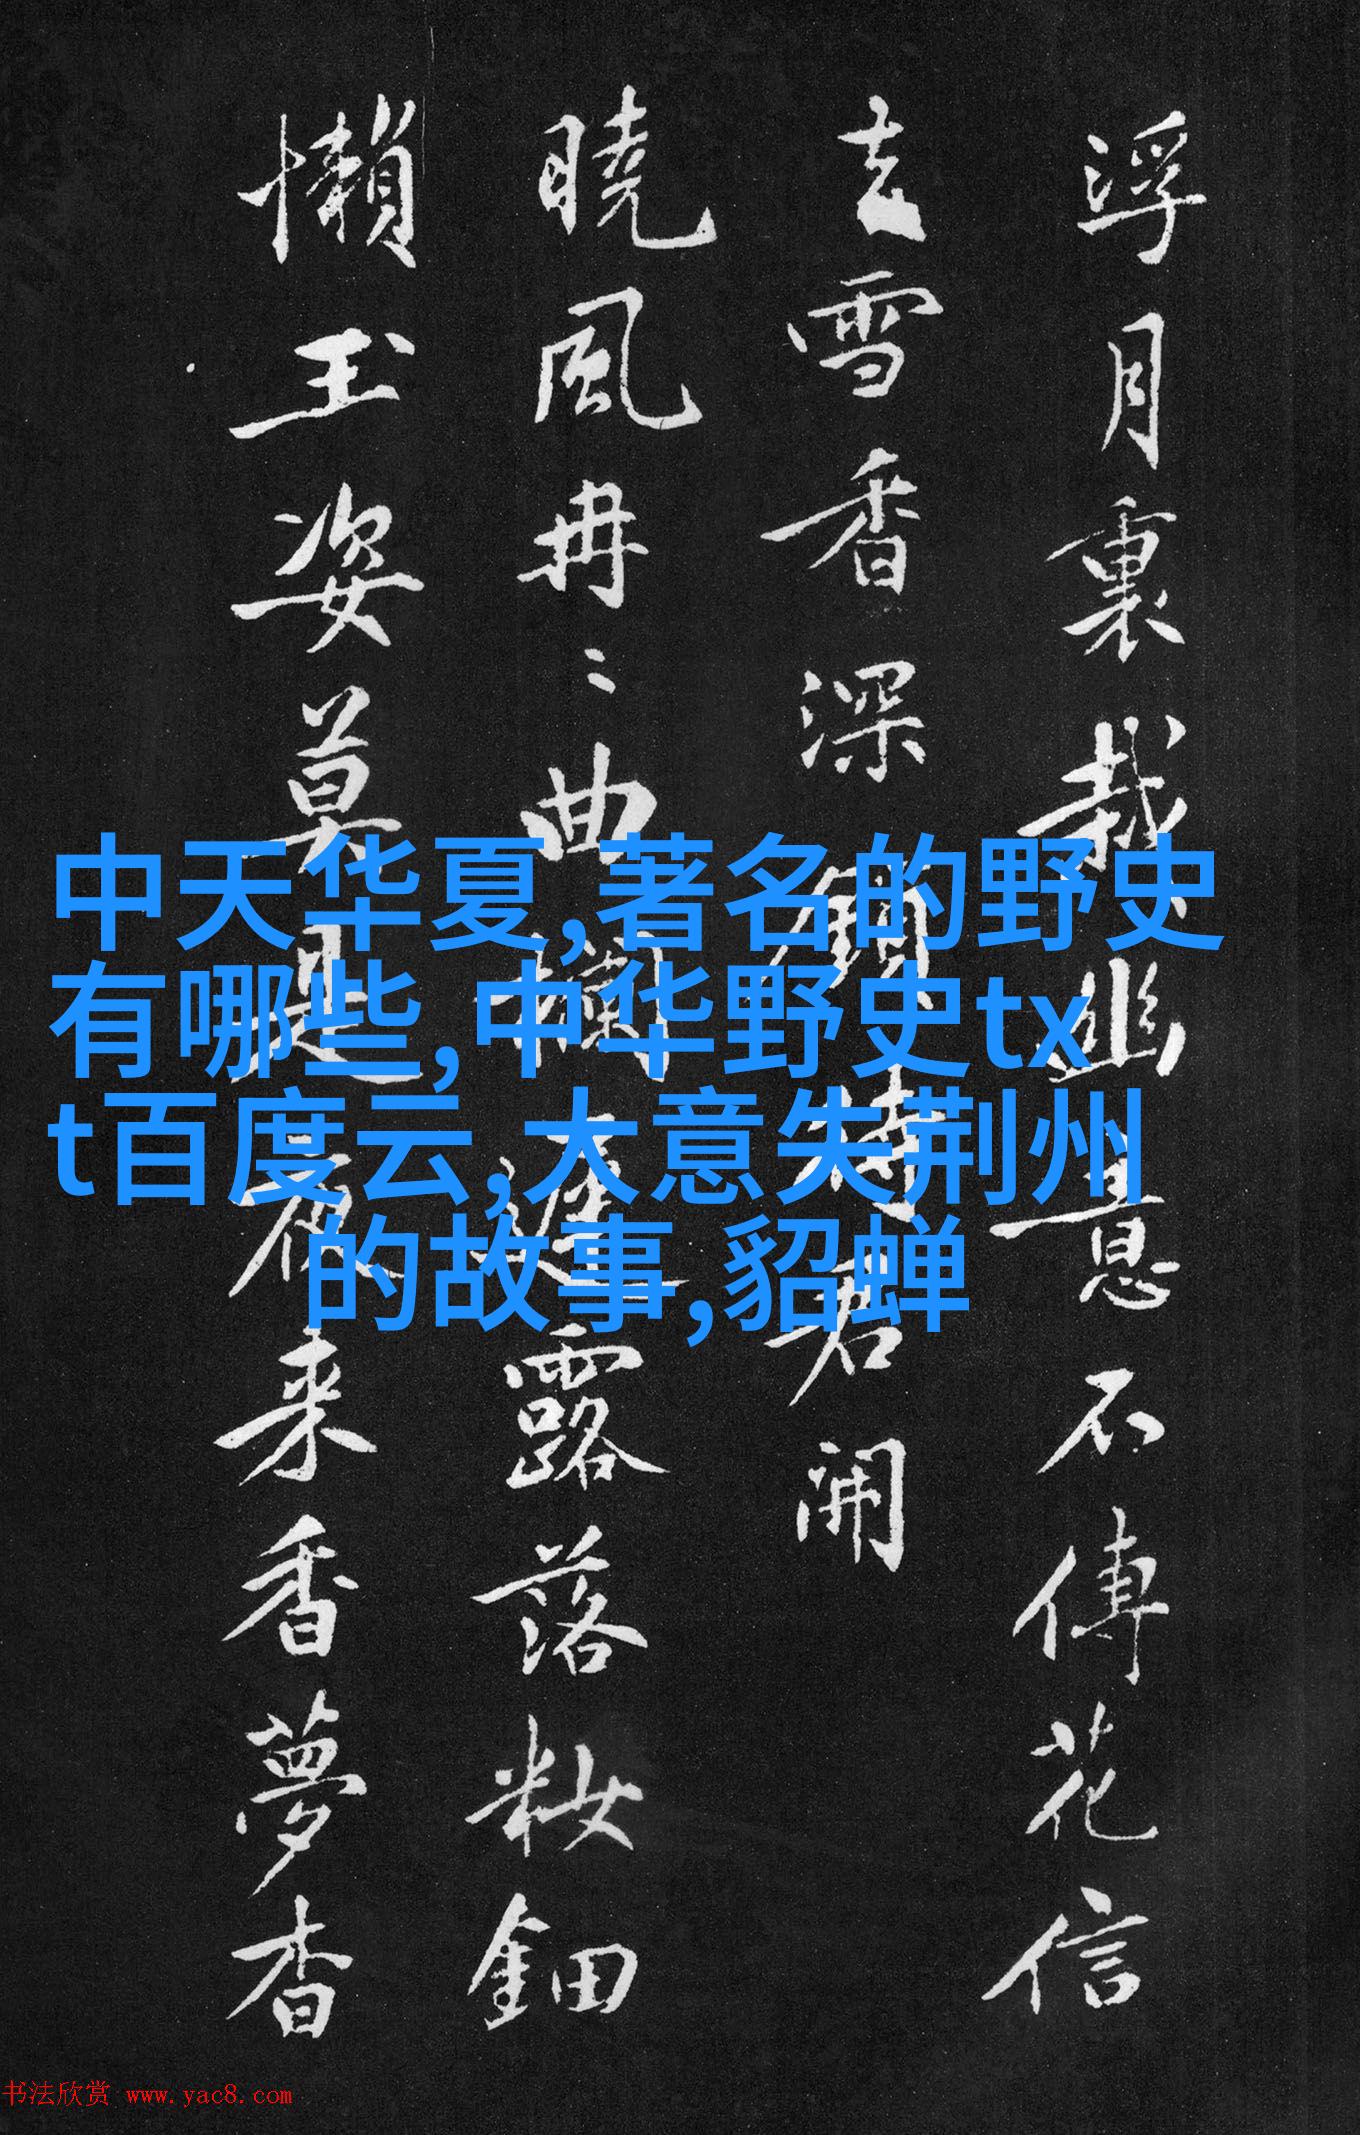 浮月裏栽幽意不傳花信
去雪香深鎖待君開
曉風冉〻曲欄露落粧鈿
懶玉姿莫是夜来香夢杳
中天华夏,著名的野史
有哪些,中华野史tx
t百度云,大意失荆州
的故事,貂蝉
书法欣赏 www.yac8.com